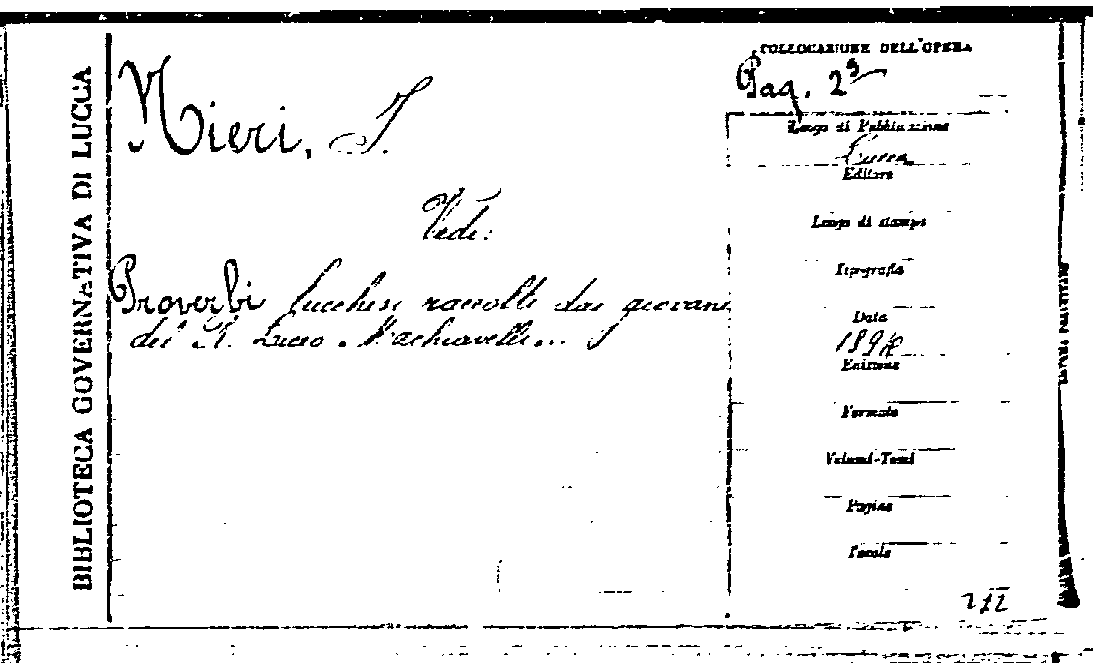 BIBLIOTECA GOVERNATIVA DI LUCCA
Nieri, I.
Vedi:
Proverbi lucchesi raccolti dai giovani
del R. Liceo Machiavelli...
COLLOCAZIONE DELL'OPERA
Pag. 25
Luogo di Pubblicazione
Lucca
Editore
Luogo di stampa
Tipografia
Data
Edizione
Formato
Volumi-Tomi
Pagine
Tavole